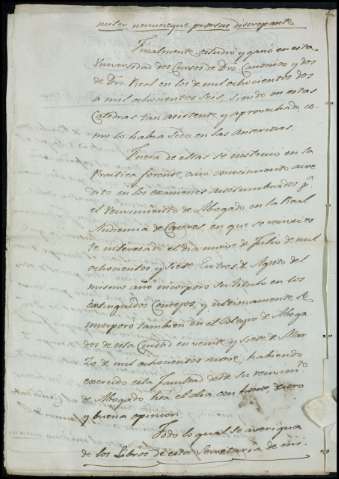 nemine prorsus discrepante.
Finalmente, estudió y ganó en esta
Universidad dos Cursos de Dro Canonico y dos
de Dro Real en los de mil ochocientos dos
a mil ochocientos seis, siendo en estas
Catedras tan asistente y aprovechado co-
mo lo habia sido en las anteriores.
Fuera de ellas se instruyó en la
Practica forense, cuyo conocimiento acre-
ditó en los examenes acostumbrados pa
el recivimiento de Abogado en la Real
Audiencia de Caracas, en que se recivió es-
te interesado el dia nueve de Julio de mil
ochocientos y siete. En tres de Agosto del
mismo año incorporó su titulo en los
extinguidos Consejos, y ultimamente se
incorporó tambien en el Colegio de Aboga-
dos de esta Ciudad en veinte y siete de Mar-
zo de mil ochocientos nueve, habiendo
exercido esta facultad desde su recivimto
de Abogado hta el dia con honor, decoro
y buena opinion.
Todo lo qual se averigua
de los Libros de esta Secretaria de mi